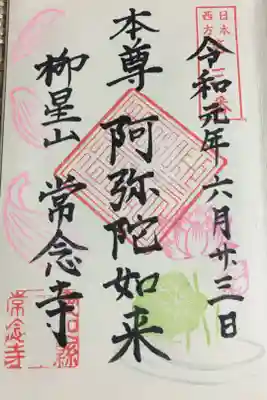 令和元年六月廿三日
本尊 阿弥陀如来
柳星山 常念寺
常念寺